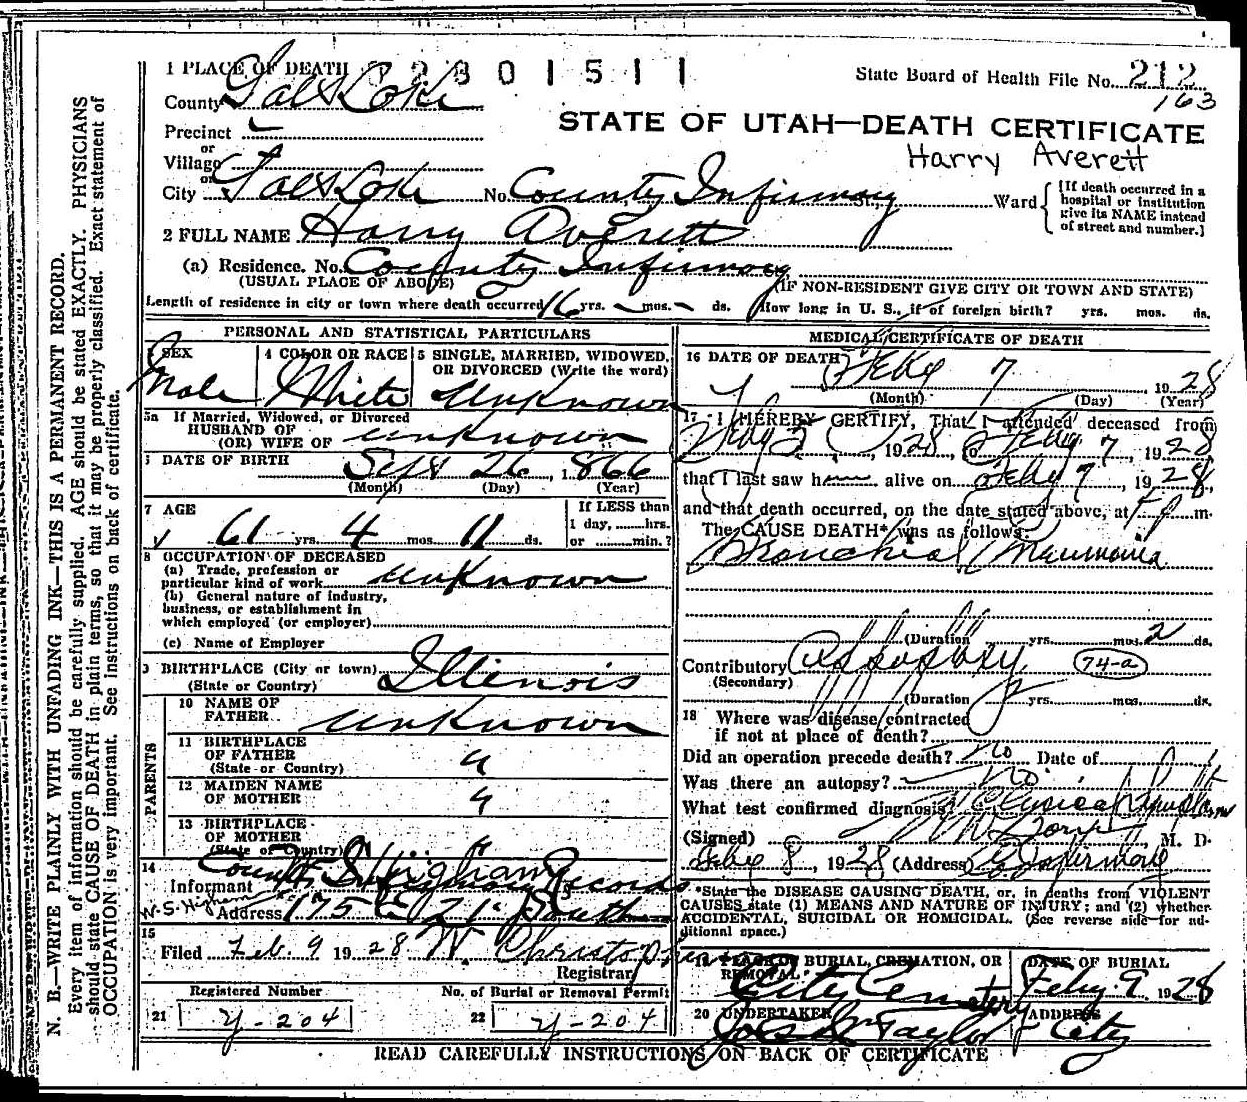 1 PLACE OF DEATH 2801511
State Board of Health File No. 212
163
County Salt Lake
STATE OF UTAH—DEATH CERTIFICATE
Precinct
or
Harry Averett
Village
or
City Salt Lake No. County Infirmary St., Ward
[If death occurred in a hospital or institution give its NAME instead of street and number.]
2 FULL NAME Harry Averett
(a) Residence. No. County Infirmary
(USUAL PLACE OF ABODE) (IF NON-RESIDENT GIVE CITY OR TOWN AND STATE)
Length of residence in city or town where death occurred 16 yrs. — mos. — ds. How long in U. S., if of foreign birth? yrs. mos. ds.
PERSONAL AND STATISTICAL PARTICULARS
3 SEX
Male
4 COLOR OR RACE
White
5 SINGLE, MARRIED, WIDOWED, OR DIVORCED (Write the word)
Unknown
5a If Married, Widowed, or Divorced
HUSBAND OF
(OR) WIFE OF unknown
6 DATE OF BIRTH Sept 26, 1866
(Month) (Day) (Year)
7 AGE
61 yrs. 4 mos. 11 ds.
If LESS than
1 day, ......hrs.
or ......min.?
8 OCCUPATION OF DECEASED
(a) Trade, profession or
particular kind of work unknown
(b) General nature of industry,
business, or establishment in
which employed (or employer)
(c) Name of Employer
9 BIRTHPLACE (City or town) Illinois
(State or Country)
PARENTS
10 NAME OF
FATHER unknown
11 BIRTHPLACE
OF FATHER
(State or Country) "
12 MAIDEN NAME
OF MOTHER "
13 BIRTHPLACE
OF MOTHER
(State or Country) "
14
Informant County Infirmary Records
W. S. Higham
Address 175 E 21st South
15
Filed Feb. 9 1928
Registrar
Registered Number No. of Burial or Removal Permit
21 y-204 22 y-204
MEDICAL CERTIFICATE OF DEATH
16 DATE OF DEATH Feby 7 1928
(Month) (Day) (Year)
17 I HEREBY CERTIFY, That I attended deceased from
1928, to Feby 7, 1928,
that I last saw h alive on Feby 7, 1928,
and that death occurred, on the date stated above, at m.
The CAUSE DEATH* was as follows:
Bronchial Pneumonia
(Duration yrs. mos. 2 ds.
Contributory Apoplexy 74-a
(Secondary)
(Duration yrs. mos. ds.
18 Where was disease contracted
if not at place of death?
Did an operation precede death? no Date of
Was there an autopsy? no
What test confirmed diagnosis?
(Signed) M. D.
Feby 8, 1928 (Address) Co Infirmary
*State the DISEASE CAUSING DEATH, or, in deaths from VIOLENT
CAUSES state (1) MEANS AND NATURE OF INJURY; and (2) whether
ACCIDENTAL, SUICIDAL OR HOMICIDAL. (See reverse side for additional space.)
19 PLACE OF BURIAL, CREMATION, OR
REMOVAL
City Cemetery
DATE OF BURIAL
Feby. 9 1928
20 UNDERTAKER
Taylor
ADDRESS
City
READ CAREFULLY INSTRUCTIONS ON BACK OF CERTIFICATE
N. B.—WRITE PLAINLY WITH UNFADING INK—THIS IS A PERMANENT RECORD.
Every item of information should be carefully supplied. AGE should be stated EXACTLY. PHYSICIANS
should state CAUSE OF DEATH in plain terms, so that it may be properly classified. Exact statement of
OCCUPATION is very important. See instructions on back of certificate.